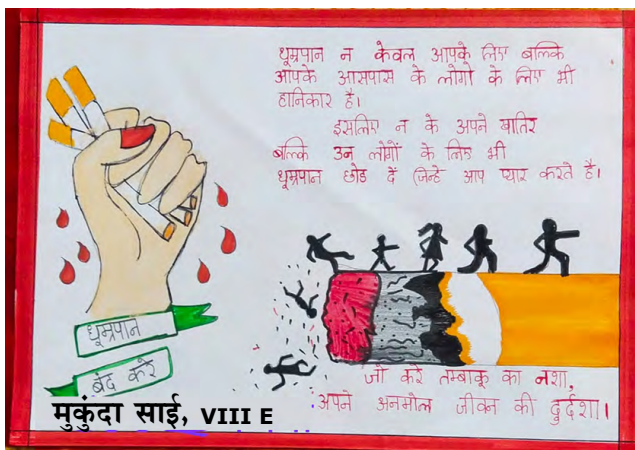 धूम्रपान न केवल आपके लिए बल्कि
आपके आसपास के लोगो के लिए भी
हानिकार है।
इसलिए न के अपने खातिर
बल्कि उन लोगों के लिए भी
धूम्रपान छोड दें जिन्हे आप प्यार करते है।
धूम्रपान
बंद करे
जो करे तम्बाकू का नशा,
अपने अनमोल जीवन की दुर्दशा।
मुकुंदा साई, VIII E